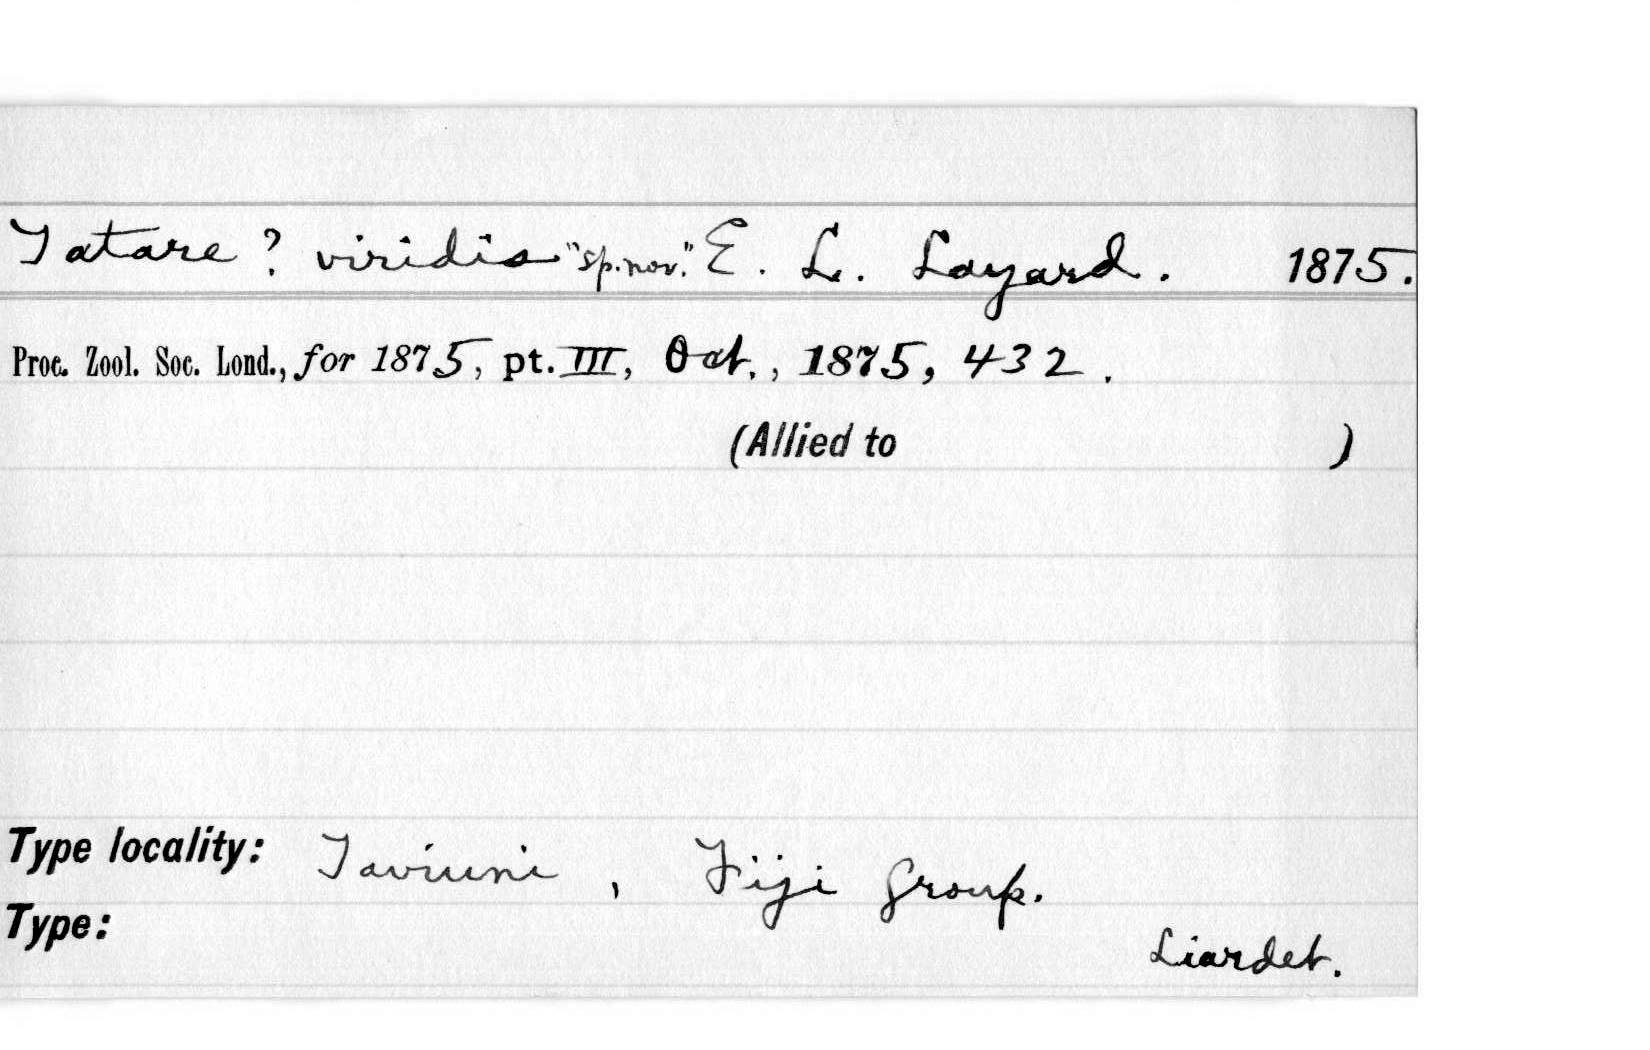 Tatare ? viridis "sp. nov." E. L. Layard. 1875.
Proc. Zool. Soc. Lond., for 1875, pt. III, Oct., 1875, 432.
(Allied to )
Type locality: Taviuni, Fiji Group.
Type:
Liardet.